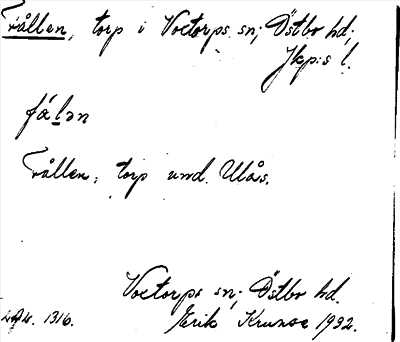 Fållen, torp i Voxtorps sn; Östbo hd;
Jkp:s l.
fá̀lən
Fållen, torp und. Ulås.
Voxtorps sn; Östbo hd.
1316. Erik 1932.